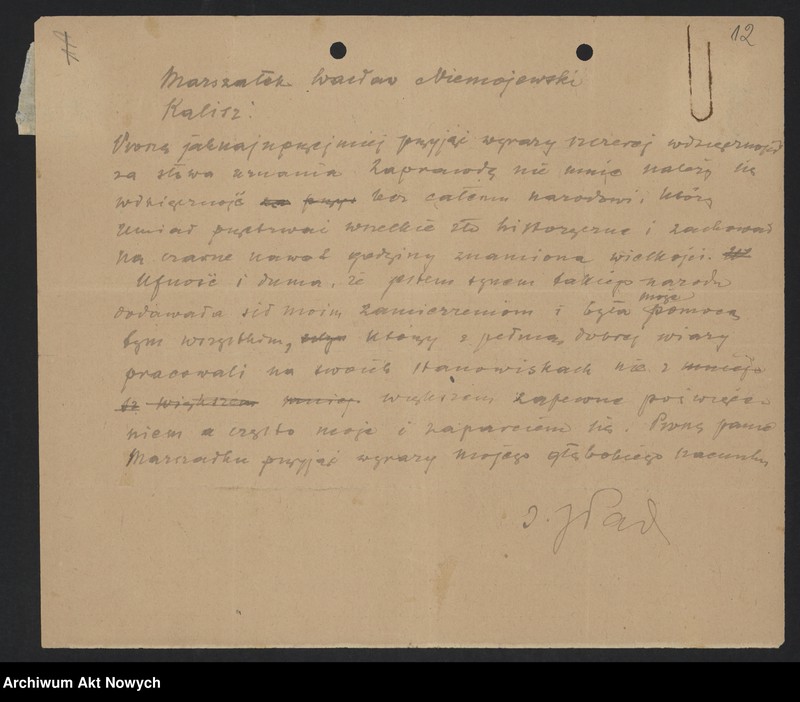 12
Marszałek Wacław Niemojewski
Kalisz.
Proszę jaknajuprzejmiej przyjąć wyrazy szczerej wdzięczności
za słowa uznania. Zaprawdę nie mnie należy się
wdzięczność lecz całemu narodowi, który
umiał przetrwać wszelkie zło historyczne i zachował
na czarne nawet godziny znamiona wielkości.
Ufność i duma, że jestem synem takiego narodu
dodawała sił moim zamierzeniom i była moją pomocą
tym wszystkim, którzy z pełną, dobrą wiarą
pracowali na swoich stanowiskach nie z mniej
większem zapewne poświęce-
niem a często moje i zaparciem się. Proszę panie
Marszałku przyjąć wyrazy mojego głębokiego szacunku
I. J. Pad
Archiwum Akt Nowych